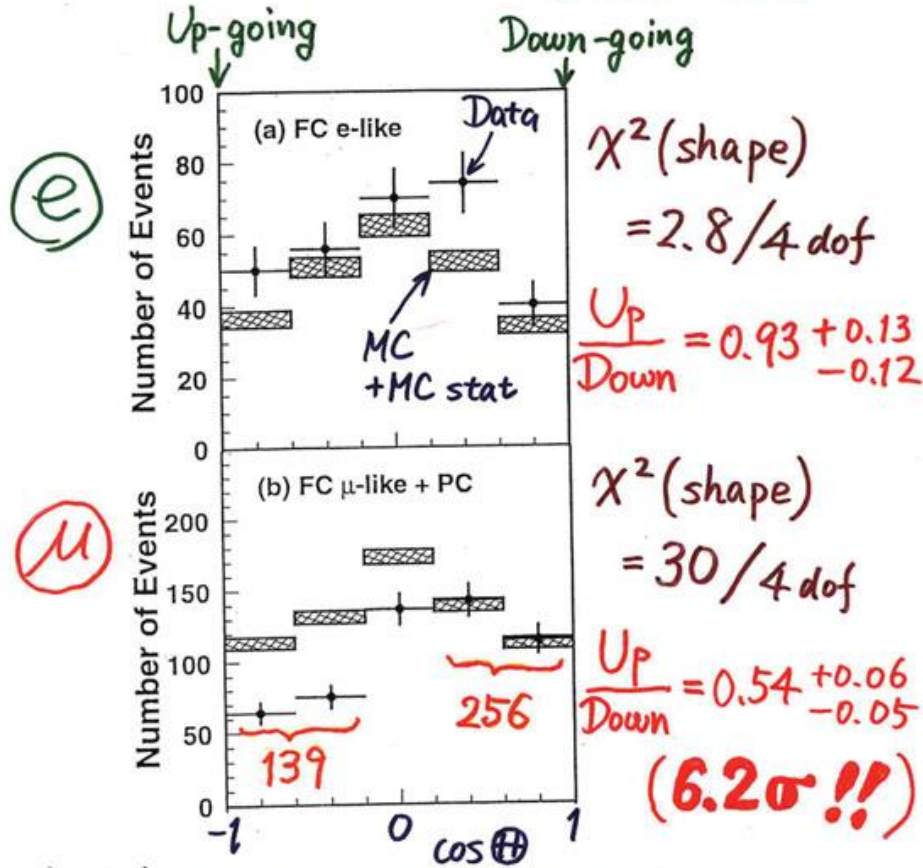 Up-going Down-going
100
80
60
40
20
0
Number of Events
(a) FC e-like
Data
MC
+MC stat
e
χ² (shape)
= 2.8/4 dof
Up/Down = 0.93 +0.13 -0.12
200
150
100
50
0
Number of Events
(b) FC μ-like + PC
139
256
μ
χ² (shape)
= 30/4 dof
Up/Down = 0.54 +0.06 -0.05
(6.2σ !!)
-1 0 1
cos Θ